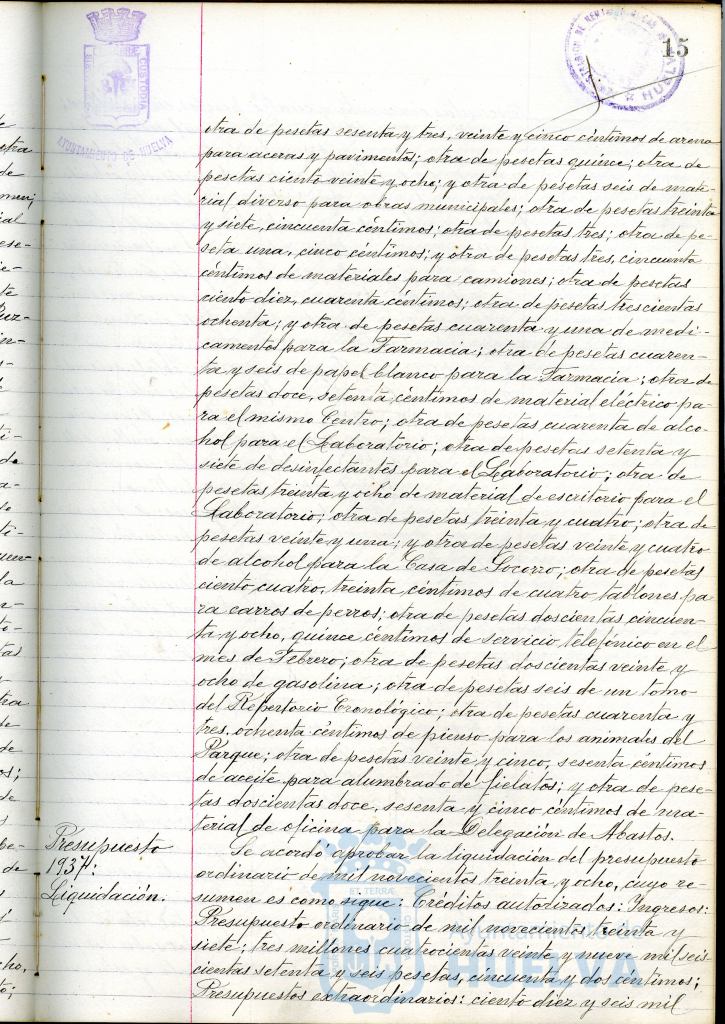 15
AYUNTAMIENTO DE HUELVA
otra de pesetas sesenta y tres, veinte y cinco céntimos de arena
para aceras y pavimentos; otra de pesetas quince; otra de
pesetas ciento veinte y ocho; y otra de pesetas seis de mate-
rial diverso para obras municipales; otra de pesetas treinta
y siete, cincuenta céntimos; otra de pesetas tres; otra de pe-
seta una, cinco céntimos; y otra de pesetas tres, cincuenta
céntimos de materiales para camiones; otra de pesetas
ciento diez, cuarenta céntimos; otra de pesetas trescientas
ochenta; y otra de pesetas cuarenta y una de medi-
camentos para la Farmacia; otra de pesetas cuaren-
ta y seis de papel blanco para la Farmacia; otra de
pesetas doce, setenta céntimos de material eléctrico pa-
ra el mismo Centro; otra de pesetas cuarenta de alco-
hol para el Laboratorio; otra de pesetas setenta y
siete de desinfectantes para el Laboratorio; otra de
pesetas treinta y ocho de material de escritorio para el
Laboratorio; otra de pesetas treinta y cuatro; otra de
pesetas veinte y una; y otra de pesetas veinte y cuatro
de alcohol para la Casa de Socorro; otra de pesetas
ciento cuatro, treinta céntimos de cuatro tablones pa-
ra carros de perros; otra de pesetas doscientas cincuen-
ta y ocho, quince céntimos de servicio telefónico en el
mes de Febrero; otra de pesetas doscientas veinte y
ocho de gasolina; otra de pesetas seis de un tomo
del Repertorio Cronológico; otra de pesetas cuarenta y
tres, ochenta céntimos de pienso para los animales del
Parque; otra de pesetas veinte y cinco, sesenta céntimos
de aceite para alumbrado de fielatos; y otra de pese-
tas doscientas doce, sesenta y cinco céntimos de ma-
terial de oficina para la Delegación de Abastos.
Presupuesto
1937:
Liquidación.
Se acordó aprobar la liquidación del presupuesto
ordinario de mil novecientos treinta y ocho, cuyo re-
sumen es como sigue: Créditos autorizados: Ingresos:
Presupuesto ordinario de mil novecientos treinta y
siete; tres millones cuatrocientas veinte y nueve mil seis-
cientas setenta y seis pesetas, cincuenta y dos céntimos;
Presupuestos extraordinarios: ciento diez y seis mil
Ayuntamiento de
HUELVA